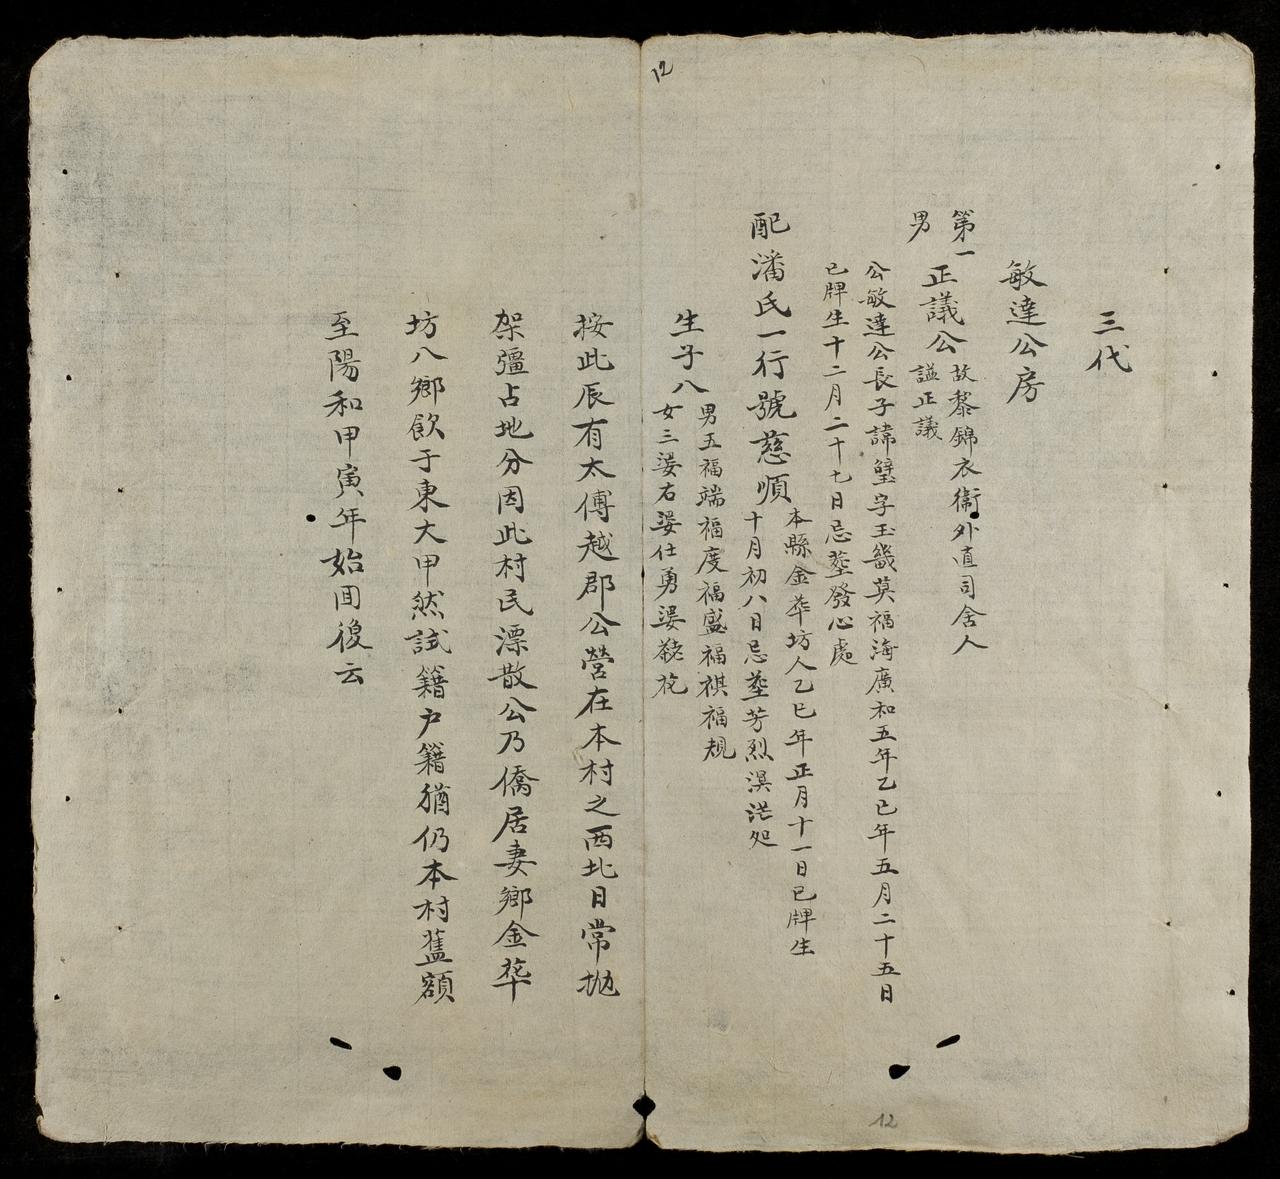 12
三代
敏達公房
第一
男
正議公
故黎錦衣衛外直司舍人
謚正議
公敏達公長子諱璧字玉璣莫福海廣和五年乙巳年五月二十五日
巳牌生十二月二十七日忌塟發心處
配潘氏一行號慈順
本縣金華坊人乙巳年正月十一日巳牌生
十月初八日忌塟芳烈溟茫处
生子八
男五福端福度福盛福祺福規
女三㛪右㛪仕勇㛪花
按此辰有太傅越郡公營在本村之西北日常抛
架彊占地分因此村民漂散公乃僑居妻鄉金華
坊八鄉飲于東大甲然試籍户籍猶仍本村舊額
至陽和甲寅年始囬復云
12